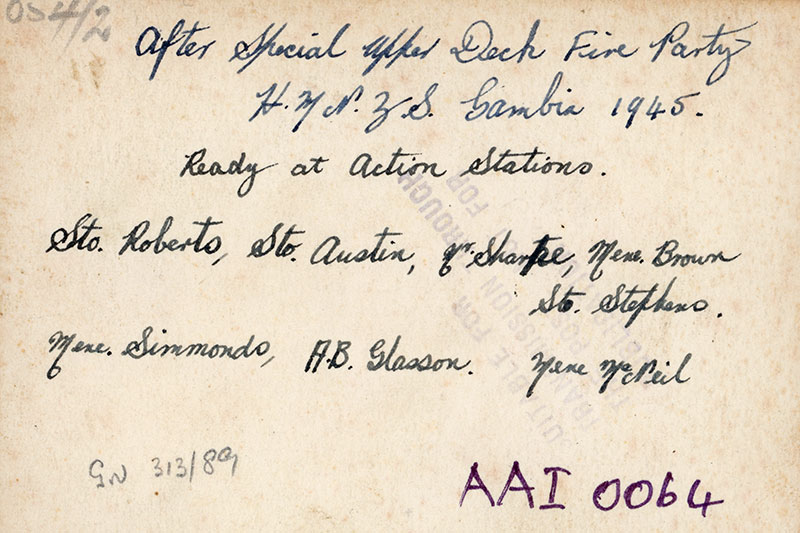 054/2
After Special Upper Deck Fire Party
H.M.N.Z.S. Gambia 1945.
Ready at Action Stations.
Sto. Roberts, Sto. Austin, Mr. Sharpe, Mne. Brown
Sto. Stephens.
Mne. Simmonds, A.B. Glasson. Mne McNeil
GN 313/89
AAI 0064